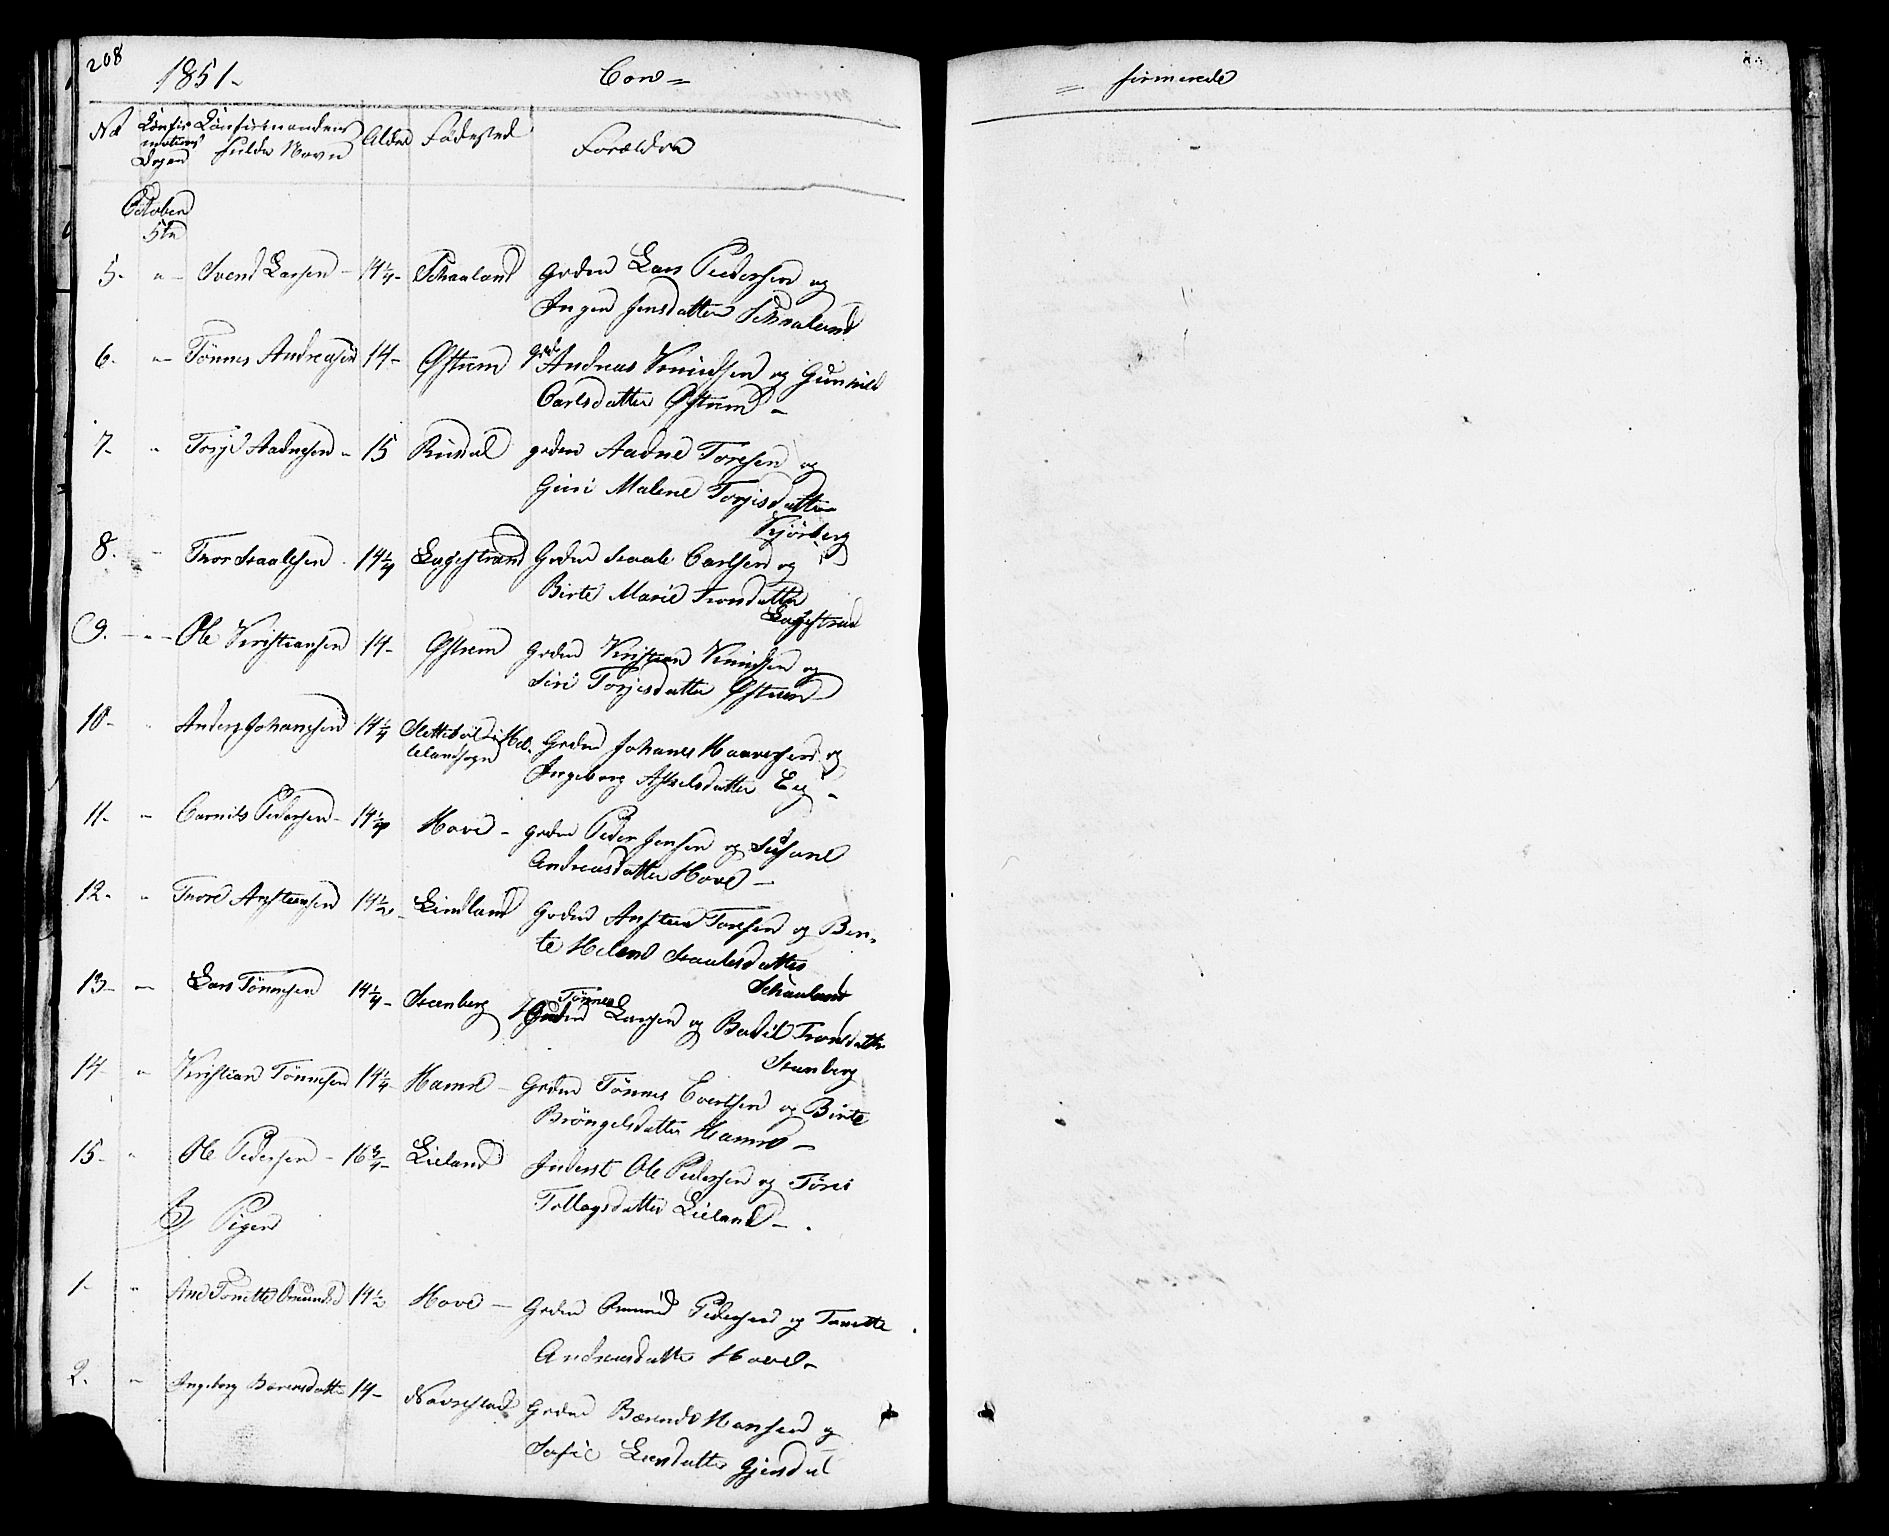 208
1851-
Con=
= firmerede
No Confirmations Dagen Confirmandens fulde Navn Alder Fødested Forældre
October
5te
5- " Svend Larsen - 14¼- Skaaland Grdm Lars Pedersen og
Inger Jensdatter Skaaland
6- " Tønnes Andreasen 14- Østrem grdm Andreas Knudsen og Gunhild
Carlsdatter Østrem -
7- " Torjs Aadnesen - 15 Rusdal grdm Aadne Toresen og
Guri Malene Torjisdatter
Kjørberg
8. - Tron Staalesen - 14¼ Lagestrand Grdm Staale Carlsen og
Birte Marie Tronsdatter
Lagestrand
9. " Ole Kristiansen 14- Østrem Grdm Kristian Knudsen og
Siri Torjesdatter Østrem
10- " Anders Johannesen 14¼ Slettebø i Hel-
lelandsogn Grdm Johanes Haaversen og
Ingeborg Askelsdatter Eeg -
11- " Cornils Pedersen - 14¼ Hove - grdm Peder Jensen og Susane
Andreasdatter Hove -
12- " Tore Anstensen 14½- Lindland Grdm Ansten Toresen og Ben-
te Helene Staalesdatter
Skaaland
13- " Lars Tønnesen 14¼- Steenberg Grdm Tønnes Larsen og Bodil Tronsdatter
Steenberg
14- " Kristian Tønnesen 14¼- Hamre - Grdm Tønnes Evertsen og Birte
Brøngelsdatter Hamre -
15- " Ole Pedersen - 16¾- Lieland Inderst Ole Pedersen og Tøri
Tollagsdatter Lieland -
B) Piger
1- " Ane Tonette Omundsd 14½ Hove - Grdm Omund Pedersen og Tonette
Andreasdatter Hove -
2. " Ingeborg Børensdatter 14- Navrestad Grdm Bærend Hansen og
Sofie Larsdatter Gjersdal